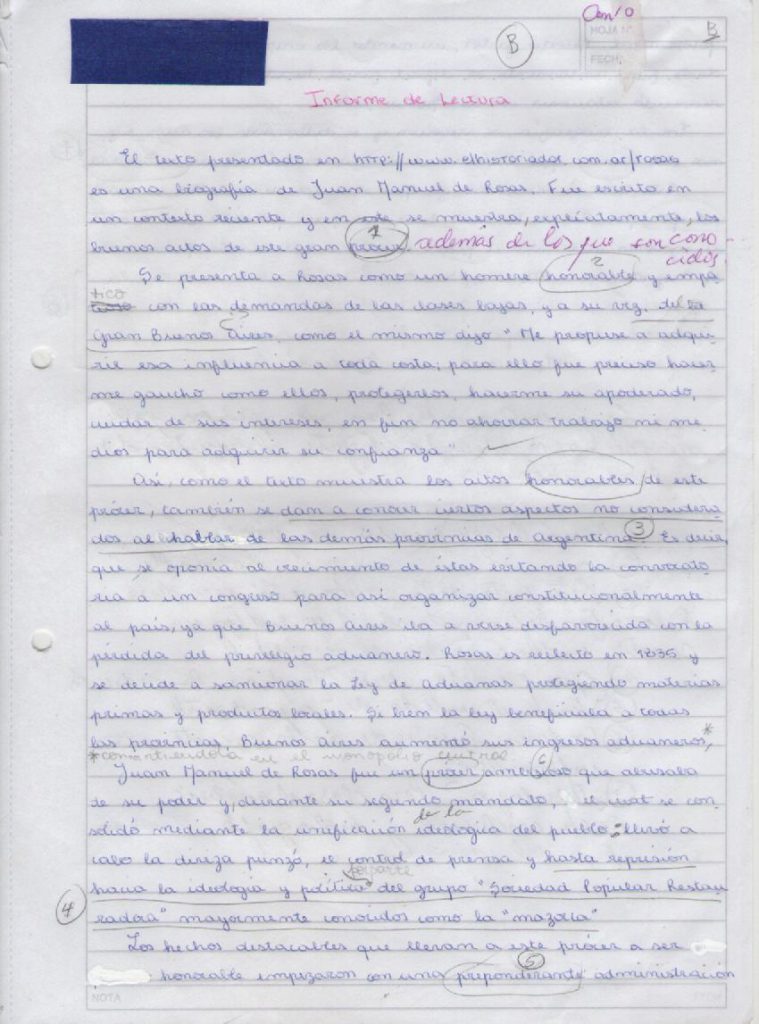 Con/0
HOJA N°
B
B
FECHA
Informe de Lectura
El texto presentado en http://www.elhistoriador.com.ar/rosas
es una biografía de Juan Manuel de Rosas. Fue escrito en
un contexto reciente y en este se muestra, expecíatamente, los
buenos actos de este gran prócer. además de los que son cono-
1
cidos.
2
Se presenta a Rosas como un hombre honorable y empa
tico
con las demandas de las clases bajas, y a su vez, de la
Gran Buenos Aires, como el mismo dijo "Me propuse a adqui
rir esa influencia a toda costa; para ello fue preciso hacer
me gaucho como ellos, protegerlos, hacerme su apoderado,
cuidar de sus intereses, en fin no ahorrar trabajo ni me
dios para adquirir su confianza"
Así, como el texto muestra los actos honorables de este
prócer, también se dam a conocer ciertos aspectos no considera
dos al hablar de las demás provincias de Argentina. Es decir,
3
que se oponía al crecimiento de éstas evitando la convocato
ria a un congreso para así organizar constitucionalmente
al país, ya que Buenos Aires iba a verse desfavorecida con la
pérdida del privilegio aduanero. Rosas es reelecto en 1835 y
se decide a sancionar la Ley de Aduanas protegiendo materias
primas y productos locales. Si bien la ley beneficiaba a todas
las provincias, Buenos Aires aumentó sus ingresos aduaneros,*
*convirtiendola en el monopolio central
6
Juan Manuel de Rosas fue un prócer ambicioso que abusaba
de su poder y, durante su segundo mandato, el cual se con
solidó mediante la unificación ideologica del pueblo: llevó a
de la
cabo la divisa punzó, el control de prensa y hasta represión
por parte
hacia la ideología y política del grupo "Sociedad Popular Restau
4
radora" mayormente conocidos como la "mazorca"
Los hechos destacables que llevan a este prócer a ser
5
honorable empezaron con una preponderante administración
NOTA